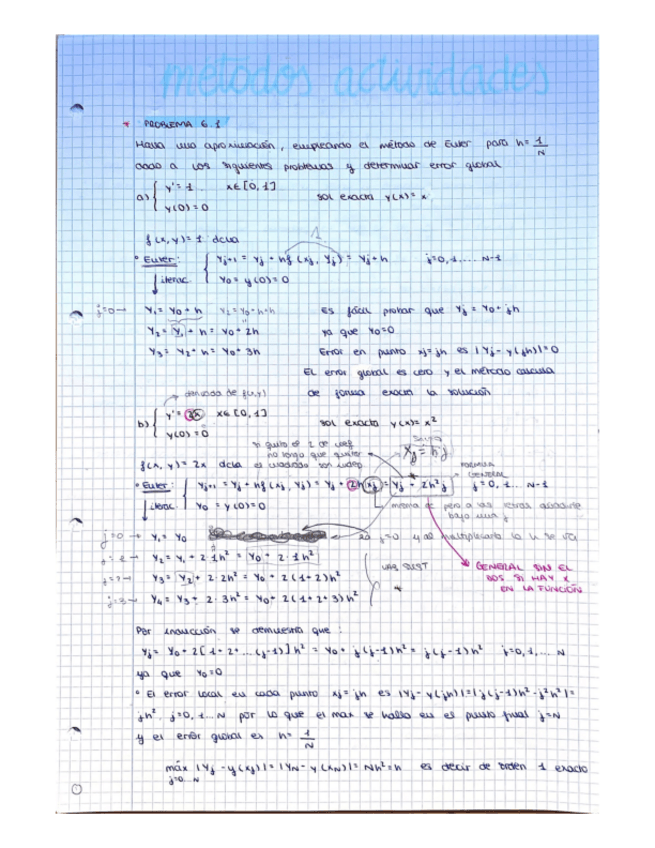 métodos actividades
* PROBLEMA 6.1
Halla una aproximación, empleando el método de Euler para h= 1/N
dado a los siguientes problemas y determinar error global
a) { y' = 1 x∈[0,1]
y(0)=0
sol exacta y(x)= x
f(x,y)= 1 dcua
1
° Euler: { Yj+1 = Yj + hf(xj, Yj) = Yj+h j=0,1.... N-1
↓iterac. Y0 = y(0)=0
j=0→ Y1= Y0 + h Y2= Y0+h+h
Es fácil probar que Yj = Y0 + jh
Y2= Y1 + h = Y0+ 2h
ya que Y0=0
Y3= Y2+ h= Y0+ 3h
Error en punto xj=jh es |Yj- y(jh)|=0
El error global es cero y el método calcula
de forma exacta la solución
→ derivada de f(x,y)
b) { y'= 2x x∈[0,1]
y(0)=0
sol exacta y(x)= x²
si quito el 2 de coef
no tengo que quitar
el cuadrado son indep
xj = h·j
f(x,y)= 2x dcua
FORMULA
GENERAL
° Euler: { Yj+1 = Yj + hf(xj, Yj) = Yj + 2h xj = Yj + 2h²j j=0,1,... N-1
↓iterac. Y0 = y(0)=0
misma pero a las letras
bajo una j
j=0 → Y1= Y0
j=0 y al multiplicarlo la h se va
Y2= Y1 + 2·1h² = Y0 + 2·1h²
Y3= Y2 + 2·2h² = Y0 + 2(1+2)h²
j=3→ Y4= Y3 + 2·3h² = Y0+ 2(1+2+3)h²
SUST
*
GENERAL SIN EL
DOS SI HAY X
EN LA FUNCIÓN
Por inducción se demuestra que:
Yj= Y0 + 2[1+2+...(j-1)]h² = Y0 + j(j-1)h² = j(j-1)h² j=0,1,... N
ya que Y0=0
° El error local en cada punto xj=jh es |Yj- y(jh)|=|j(j-1)h²-j²h²|=
jh² j=0,1... N por lo que el max se halla en el punto final j=N
y el error global es h= 1/N
máx |Yj -y(xj)|=|YN - y(xN)|= Nh²=h es decir de orden 1 exacto
j=0..N
1